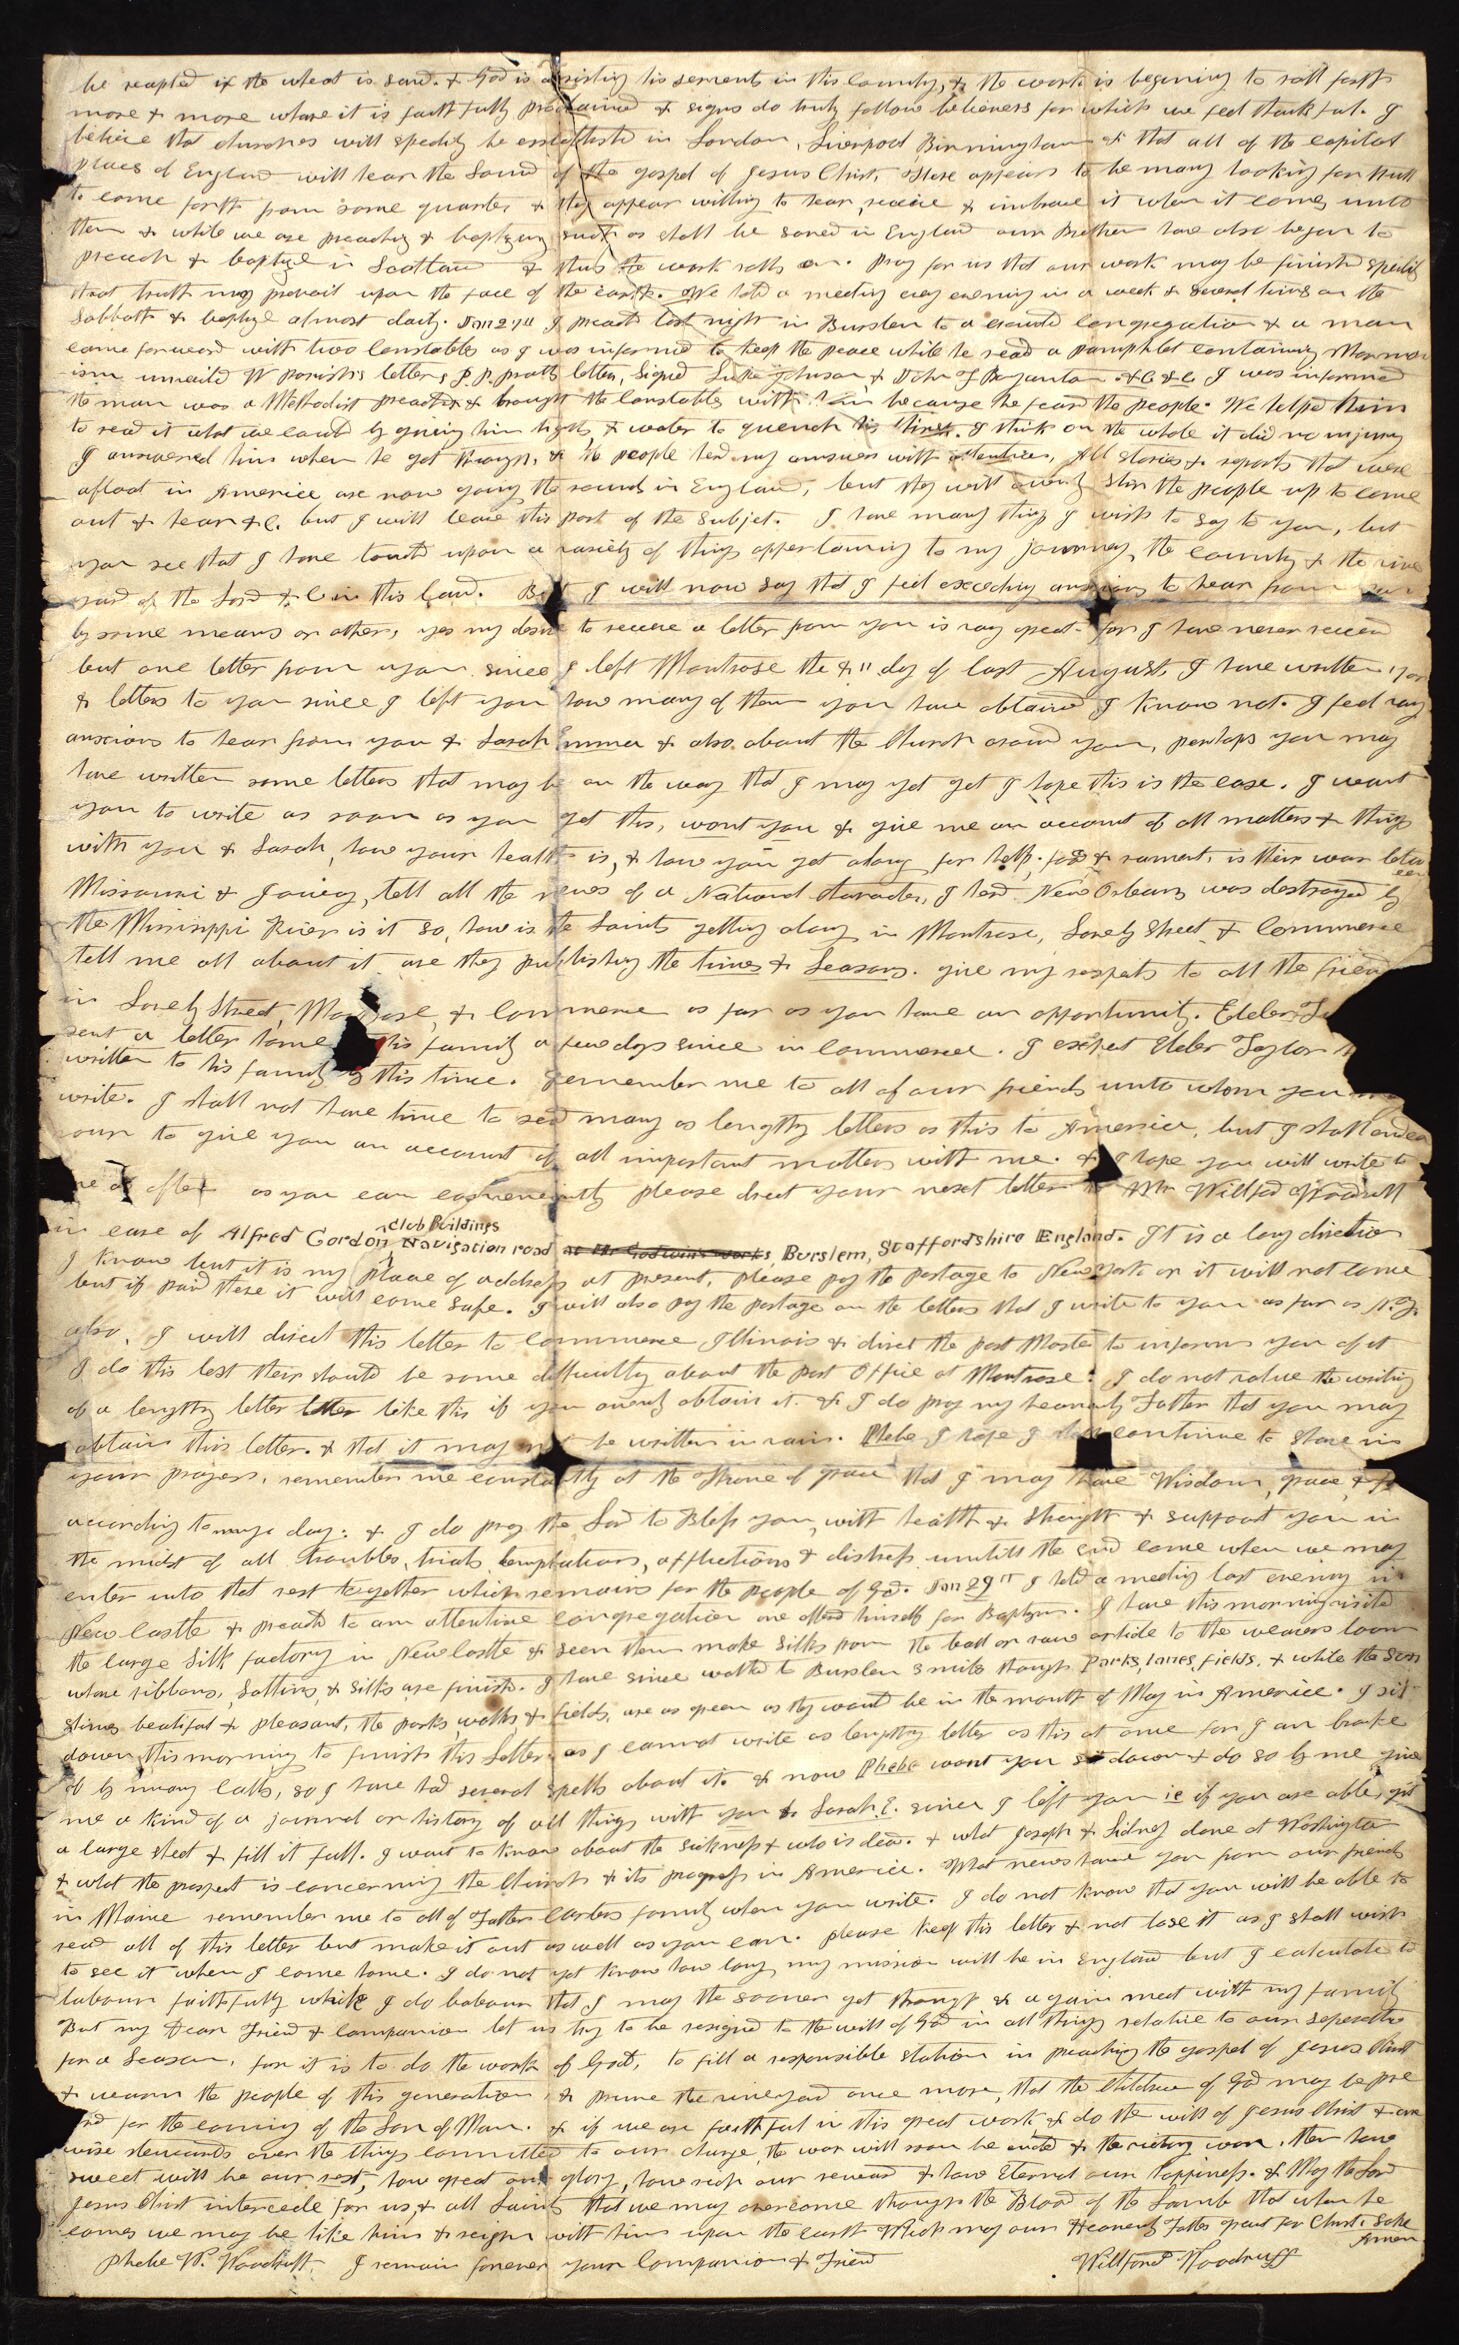 be reapted if the wheat is sawd. & God is assisting his servants in this County, & the work is begining to roll forth
more & more whare it is faithfully proclaimed & signs do truly follow believers for which we feel thankful. I
believe that churches will speedily be established in London, Liverpool, Birmingham & that all of the capital
places of England will hear the Sound of the gospel of Jesus Christ, thare appears to be many looking for truth
to come forth from some quarter & they appear willing to hear, receive & imbrace it when it comes unto
them & while we are preaching & baptizing such as shall be saved in England our Brethren have also began to
preach & baptize in Scotland & thus the work rolls on. Pray for us that our work may be finished speedily
that truth may prevail upon the face of the earth. We hold a meeting evry evening in a week & several times on the
Sabbath & baptize almost daily. Jan 27th I preachd last night in Burslem to a crowded congregation & a man
came forward with two Constables as I was informed to keep the peace while he read a pamphlet containing Mormon
ism unveild W parishs letter, P. P. pratts letter, Signed Luke Johnson, & John F Boyanton &c &c I was informed
the man was a Methodist preacher & brought the Constables with him because he feard the people. We helped him
to read it what we could by giving him light, & water to quench his thirst. I think on the whole it did no injury
I answered him when he got through, & the people herd my answers with attention, All stories & reports that were
afloat in America are now going the rounds in England, but they will ownly stir the people up to come
out & hear &c. but I will leave this part of the subject. I have many things I wish to say to you, but
you see that I have touchd upon a variety of things appertaining to my journey, the country & the vine
yard of the Lord &c in this land. But I will now say that I feel exceding anxious to hear from you
by some means or other, yes my desire to receive a letter from you is vary great for I have never received
but one letter from you since I left Montrose the 8th day of last August, I have written you
8 letters to you since I left you how many of them you have obtained I know not. I feel vary
anxious to hear from you & Sarah Emma & also about the Church around you, perhaps you may
have written some letters that may be on the way that I may yet get I hope this is the case. I want
you to write as soon as you get this, wont you & give me an account of all matters & things
with you & Sarah, how your health is, & how you get along for help, food & raiment, is their war betw
een
Missouri & Joway, tell all the news of a National character, I herd New Orleans was destroyed by
the Mississppi River is it so, how is the Saints getting along in Montrose, Lovely Street & Commerce
tell me all about it are they publishing the times & Seasons. give my respets to all the friends
in Lovely Street, Montrose, & Commerce as far as you have an opportunity. Elder
sent a letter home to his family a few days since in Commerce. I expect Elder Taylor
written to his family by this time. Remember me to all of our friends unto whom you
write. I shall not have time to send many as lengthy letters as this to America, but I shall endea
vour to give you an account of all important matters with me. & I hope you will write to
me as often as you can conveniently please direct your next letter to Mr Willford Woodruff
Club Buildings
in care of Alfred Gordon, Navigation road at Mr Godwins works, Burslem, Staffordshire England. It is a long direction
I know but it is my place of address at present, please pay the postage to New York or it will not come
but if paid there it will come safe. I will also pay the postage on the letters that I write to you as far as N.Y.
also, I will direct this letter to Commerce Illinois & direct the post Master to inform you of it
I do this lest their should be some difficulty about the post Office at Montrose. I do not value the writing
of a lengthy letter letter like this if you ownly obtain it. & I do pray my heavenly Father that you may
obtain this letter. & that it may not be written in vain. Phebe I hope I shall continue to share in
your prayers, remember me constantly at the Throne of grace that I may have Wisdom, grace, &
according to my day: & I do pray the Lord to Bless you, with health & strength & support you in
the midst of all troubles, trials temptations, afflictions & distress untill the end come when we may
enter into that rest together which remains for the people of God. Jan 29th I held a meeting last evening in
New Castle & preachd to an attentive congregation one offerd himself for Baptism. I have this morning visited
the large Silk factory in Newcastle & seen them make silks from the ball or raw article to the weavers loom
whare ribbons, Sattins, & silks are finishd. I have since walkd to Burslem 3 miles through Parks, lanes, fields, & while the Sun
shines beatiful & pleasant, the parks walks & fields, are as green as they would be in the month of May in America. I sit
down this morning to finish this Letter as I cannot write as lengthy letter as this at once for I am broake
of by many calls, so I have had several spells about it. & now Phebe wont you sit down & do so by me give
me a kind of a journal or history of all things with you & Sarah E. since I left you ie if you are able, get
a large sheet & fill it full. I want to know about the sickness & who is dead. & what Joseph & Sidney done at Washington
& what the prospect is concerning the Church & its progress in America. What news have you from our friends
in Maine remember me to all of Father Carters family when you write. I do not know that you will be able to
read all of this letter but make it out as well as you can. please keep this letter & not lose it as I shall wish
to see it when I come home. I do not yet know how long my mission will be in England but I calculate to
labour faithfully while I do labour that I may the sooner get through & again meet with my family
But my Dear Friend & companion let us try to be resigned to the will of God in all things relative to our seperation
for a Season, for it is to do the work of God, to fill a responsible station in preaching the gospel of Jesus Christ
& wearn the people of this generation, & prune the vineyard once more, that the Children of God may be pre
ard for the coming of the Son of Man. & if we are faithful in this great work & do the will of Jesus Christ & are
wise stewards over the things committed to our charge, the war will soon be ended & the victory won, then how
sweet will be our rest, how great our glory, how rich our reward & how Eternal our happiness. & May the Lord
Jesus Christ intercede for us, & all Saints that we may overcome through the Blood of the Lamb that when he
comes we may be like him & reign with him upon the earth Which may our Heavenly Father grant for Christ Sake
Amen
Phebe W. Woodruff. I remain forever your Companion & Friend Willford Woodruff